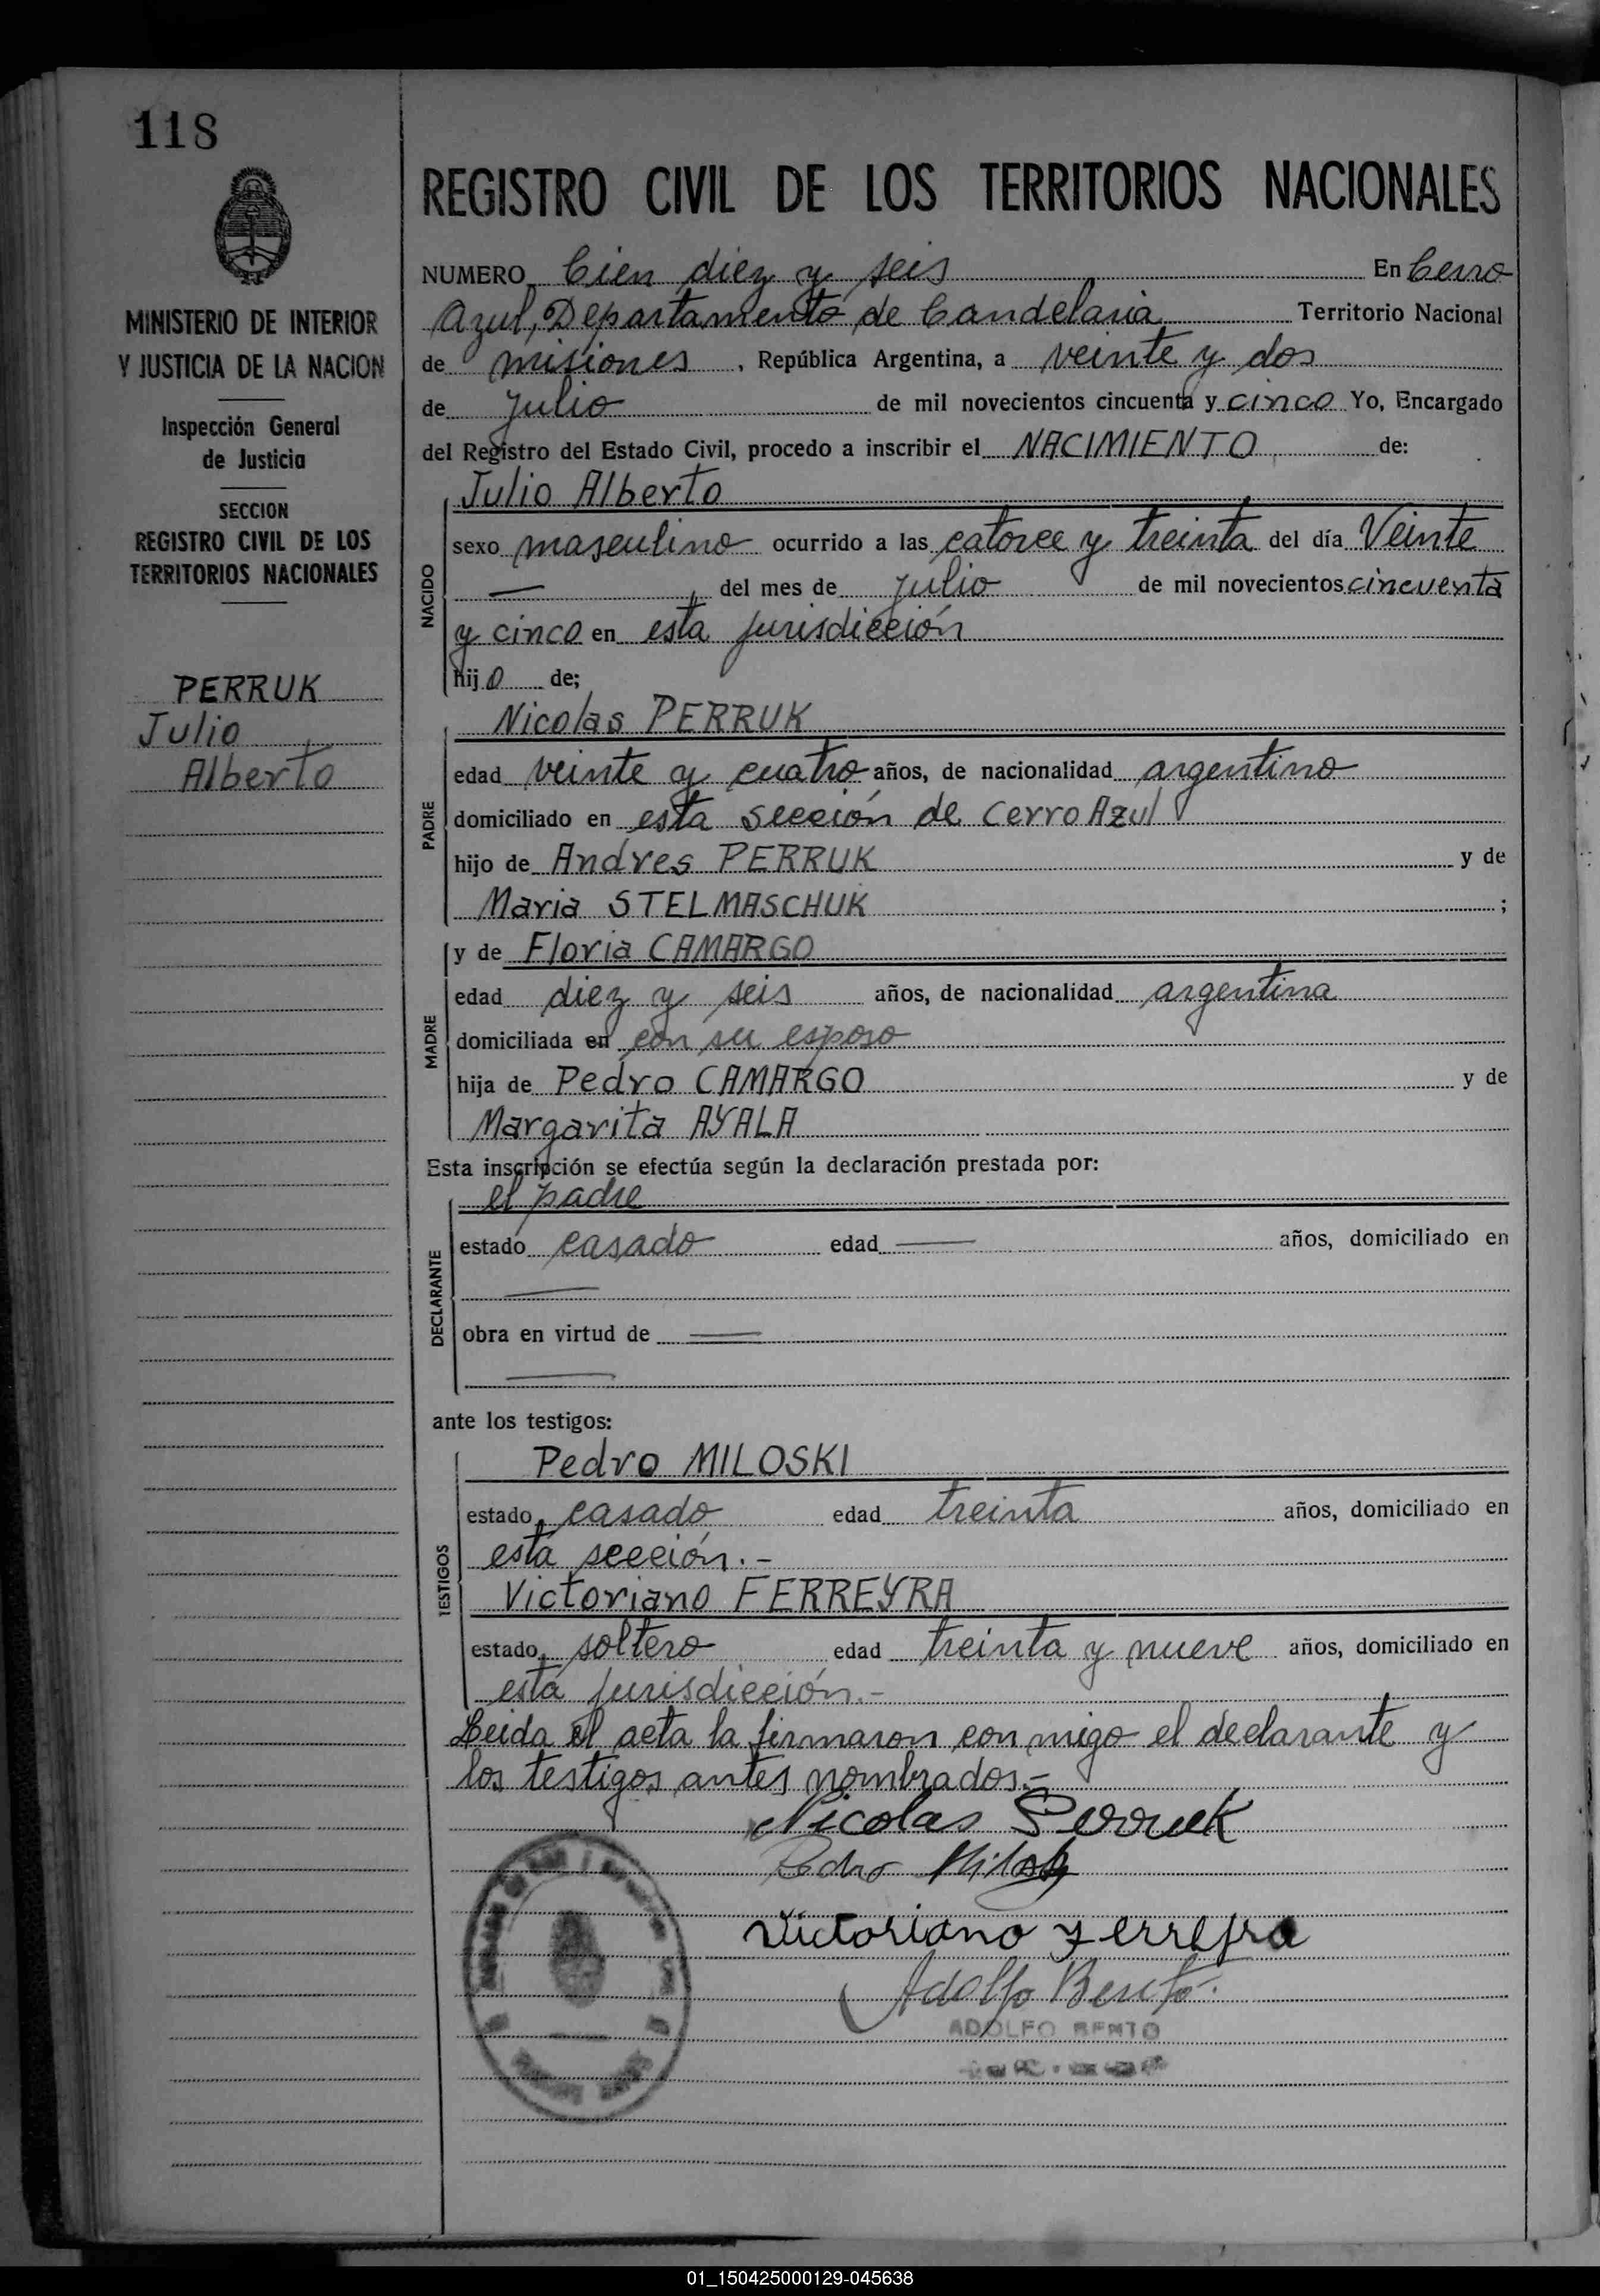 118
MINISTERIO DE INTERIOR
Y JUSTICIA DE LA NACION
Inspección General
de Justicia
SECCION
REGISTRO CIVIL DE LOS
TERRITORIOS NACIONALES
PERRUK
Julio
Alberto
REGISTRO CIVIL DE LOS TERRITORIOS NACIONALES
NUMERO Cien diez y seis En Cerro
Azul, Departamento de Candelaria Territorio Nacional
de misiones, República Argentina, a veinte y dos
de julio de mil novecientos cincuenta y cinco Yo, Encargado
del Registro del Estado Civil, procedo a inscribir el NACIMIENTO de:
NACIDO
Julio Alberto
sexo masculino ocurrido a las catorce y treinta del día Veinte
— del mes de julio de mil novecientos cincuenta
y cinco en esta jurisdicción
hijo de;
PADRE
Nicolas PERRUK
edad veinte y cuatro años, de nacionalidad argentino
domiciliado en esta sección de Cerro Azul
hijo de Andres PERRUK y de
Maria STELMASCHUK ;
MADRE
y de Floria CAMARGO
edad diez y seis años, de nacionalidad argentina
domiciliada en con su esposo
hija de Pedro CAMARGO y de
Margarita AYALA
Esta inscripción se efectúa según la declaración prestada por:
DECLARANTE
el padre
estado casado edad — años, domiciliado en
—
obra en virtud de —
—
ante los testigos:
TESTIGOS
Pedro MILOSKI
estado casado edad treinta años, domiciliado en
esta sección.-
Victoriano FERREYRA
estado soltero edad treinta y nueve años, domiciliado en
esta jurisdicción.-
Leida el acta la firmaron con migo el declarante y
los testigos antes nombrados.-
Nicolas Perruk
Pedro Miloski
Victoriano Ferreyra
Adolfo Bento
ADOLFO BENTO
01_150425000129-045638